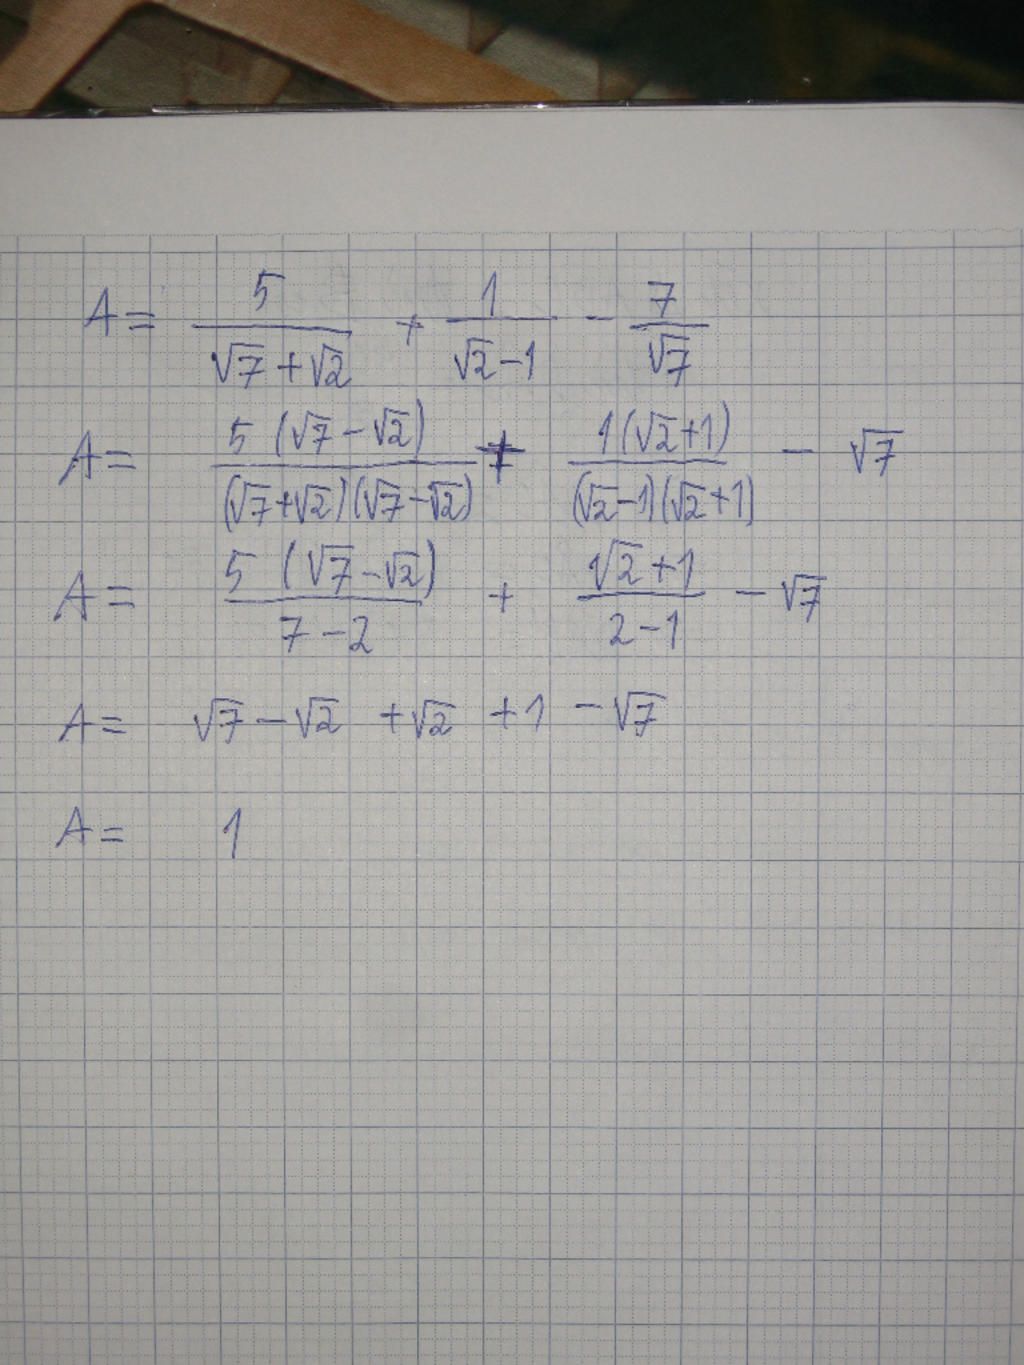 A = 5/(√7+√2) + 1/(√2-1) - 7/√7
A = 5(√7-√2)/((√7+√2)(√7-√2)) + 1(√2+1)/((√2-1)(√2+1)) - √7
A = 5(√7-√2)/(7-2) + (√2+1)/(2-1) - √7
A = √7-√2 +√2 +1 -√7
A = 1